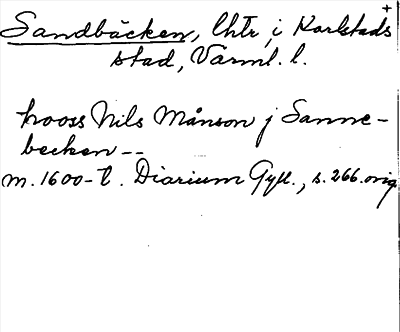 Sandbäcken, lhtr, i Karlstads
stad, Värml. l.
hooss Nils Månson j Sanne-
becken --
m. 1600-t. Diarium Gyll., s. 266. orig